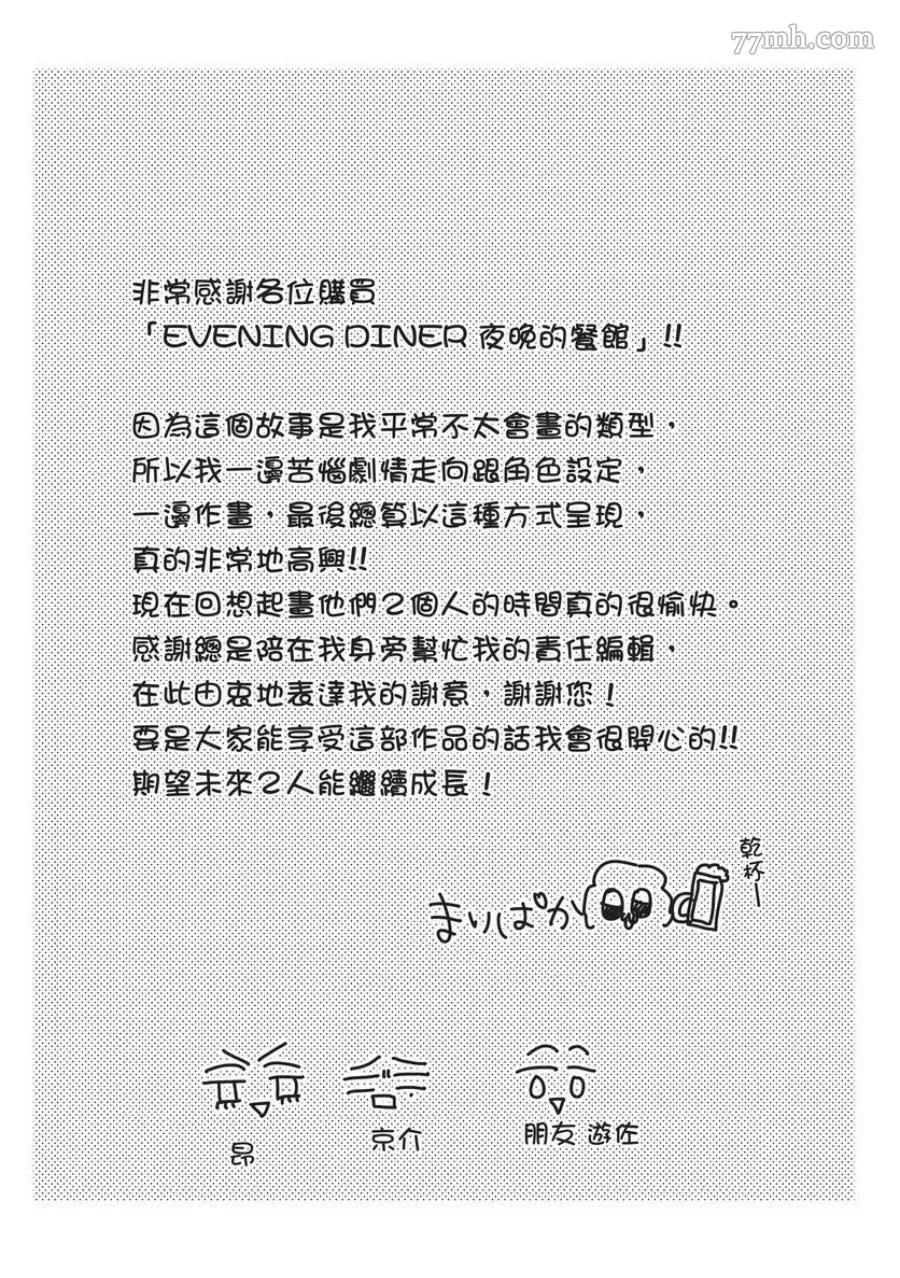 77mh.com
非常感謝各位購買
「EVENING DINER 夜晚的餐館」!!
因為這個故事是我平常不太會畫的類型，
所以我一邊苦惱劇情走向跟角色設定，
一邊作畫，最後總算以這種方式呈現，
真的非常地高興!!
現在回想起畫他們2個人的時間真的很愉快。
感謝總是陪在我身旁幫忙我的責任編輯，
在此由衷地表達我的謝意，謝謝您！
要是大家能享受這部作品的話我會很開心的!!
期望未來2人能繼續成長！
乾杯ー
まりぱか
昴
京介
朋友 遊佐